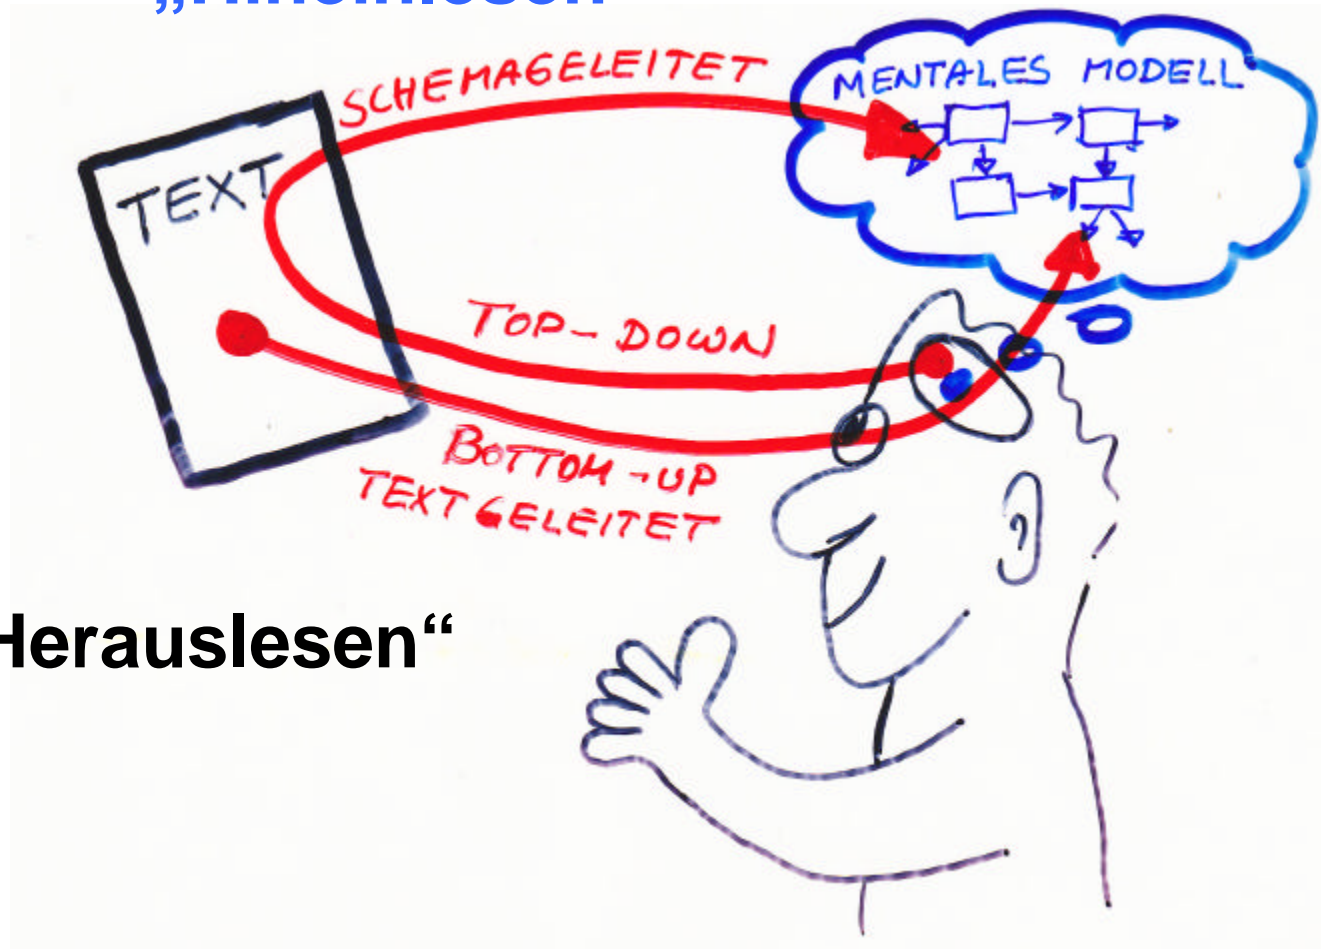 SCHEMAGELEITET
MENTALES MODELL
TEXT
TOP-DOWN
BOTTOM-UP
TEXTGELEITET
Herauslesen“